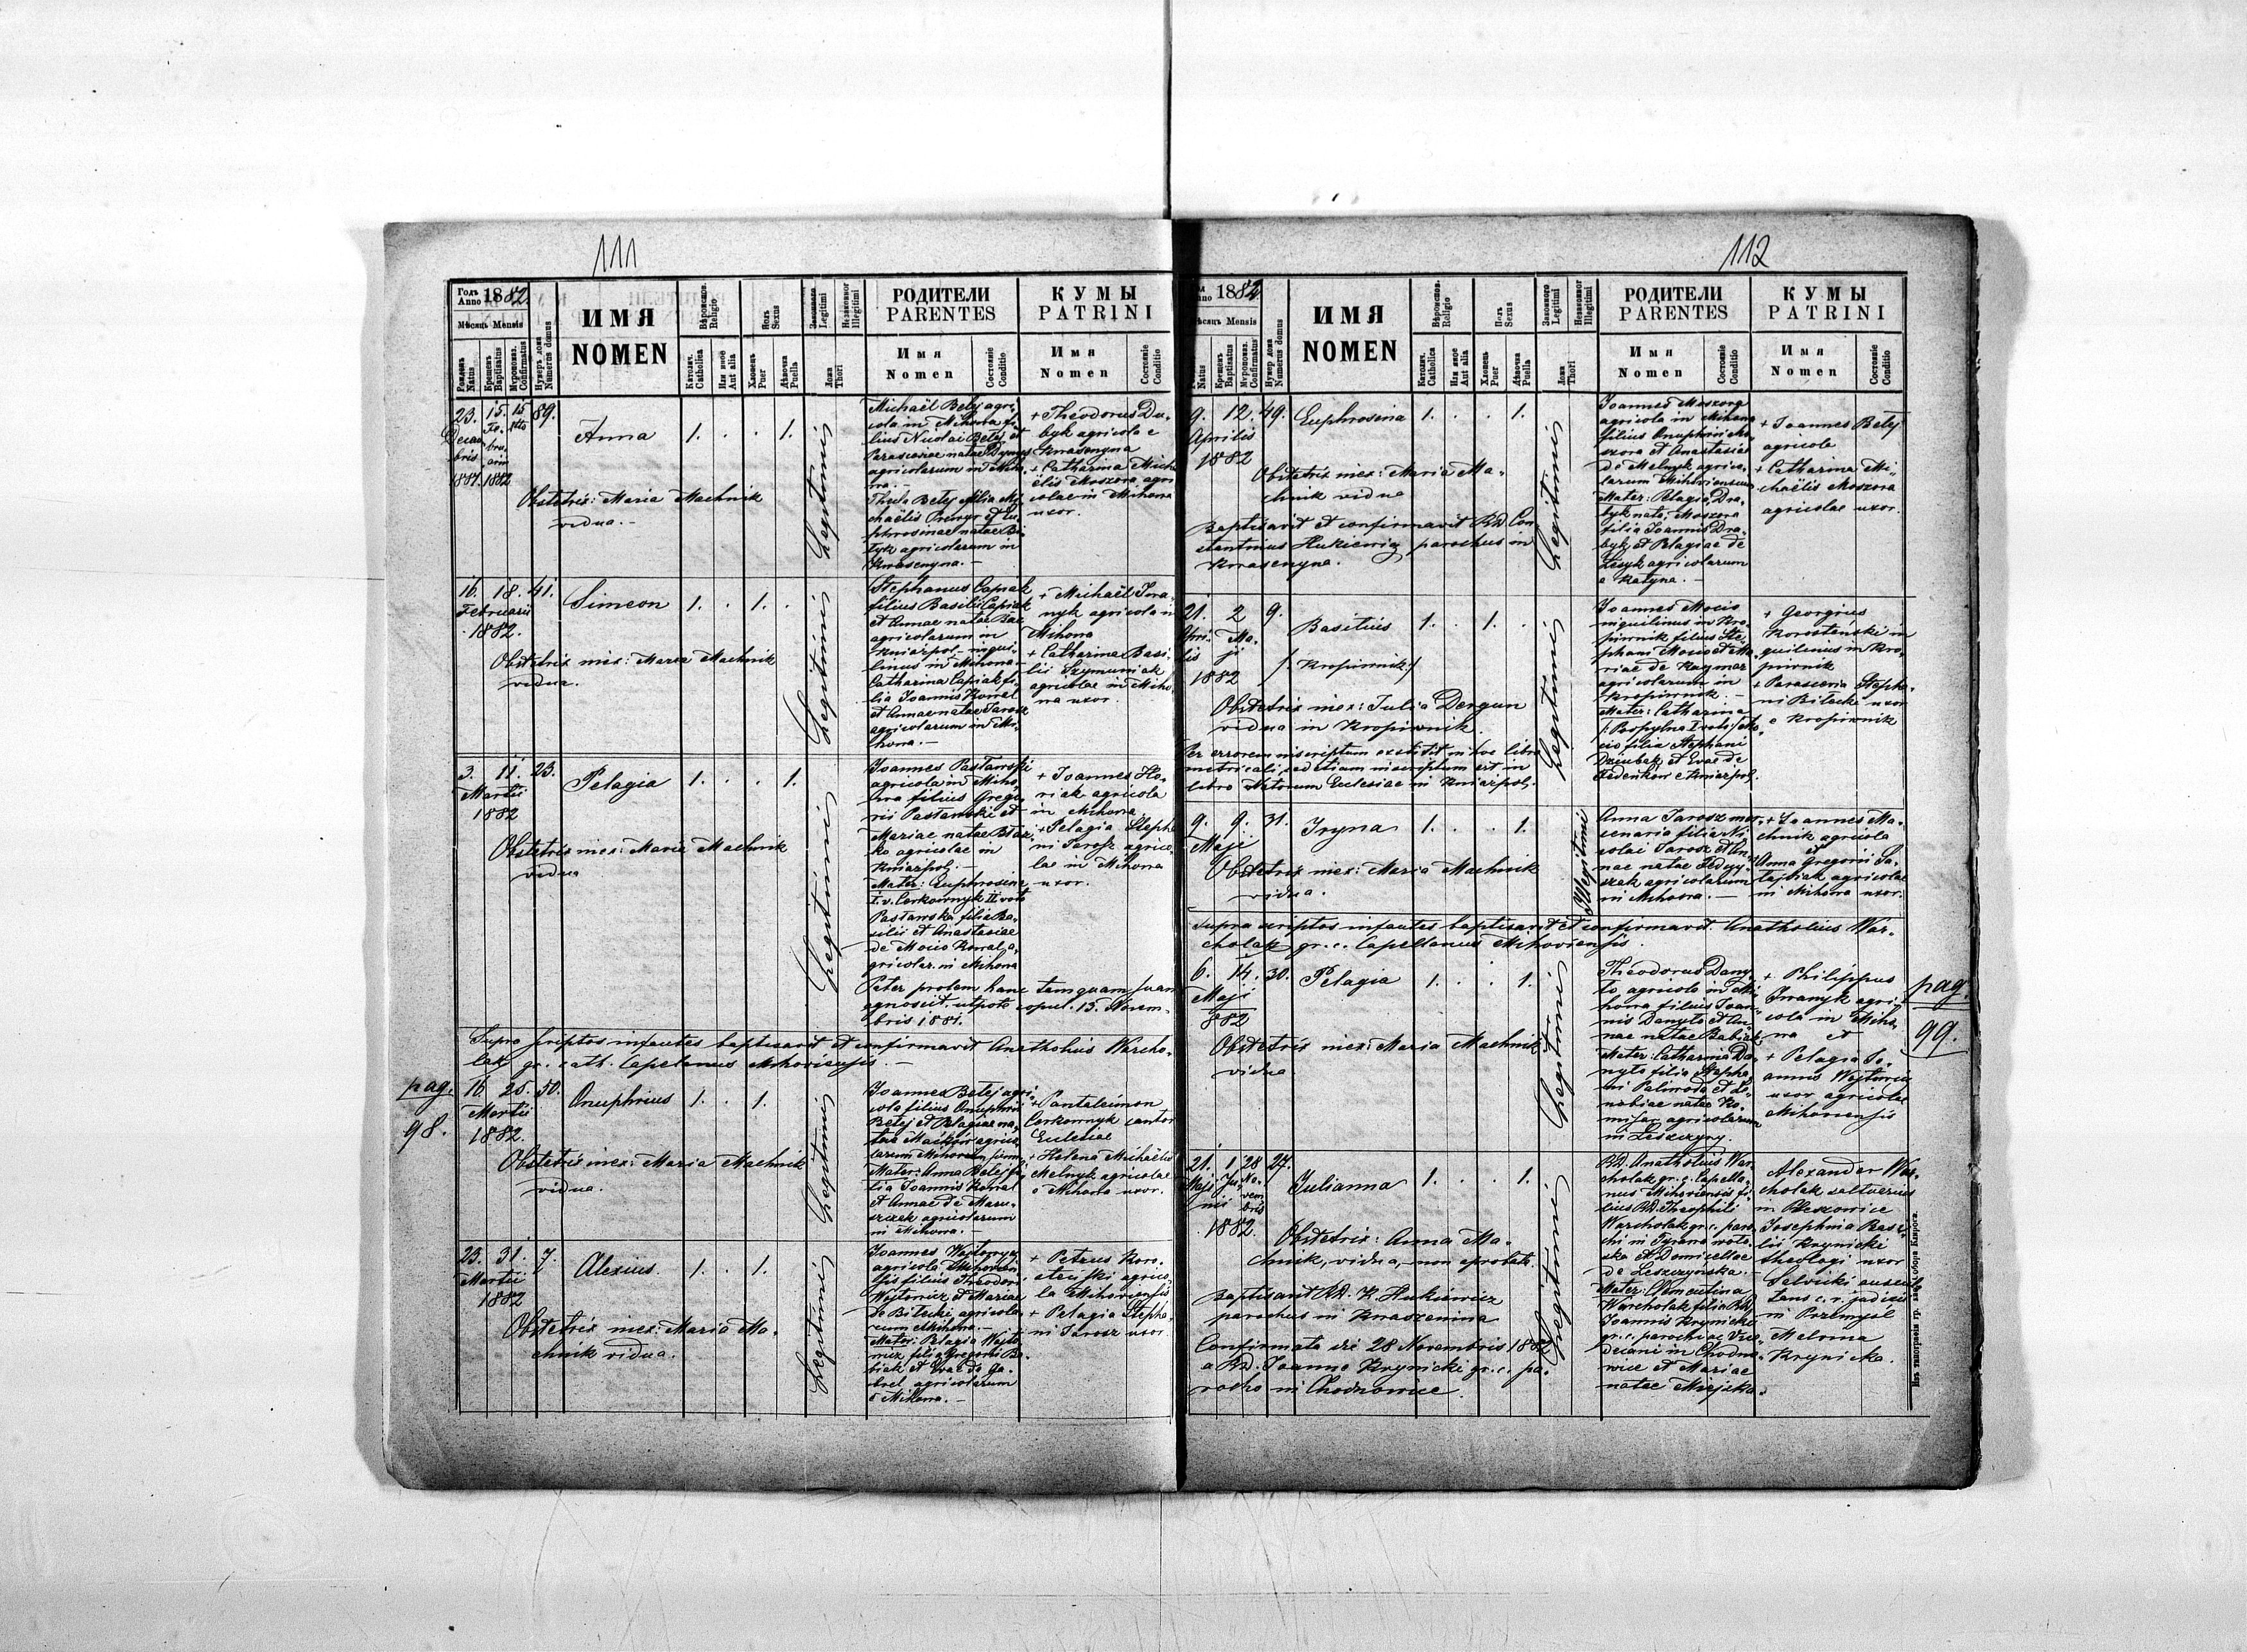 111
Годъ Anno 1882.
Мѣсяцъ Mensis
Рожденъ Natus
Крещенъ Baptisatus
Мѵропомаз. Confirmatus
Нумеръ дома Numerus domus
ИМЯ
NOMEN
Вѣроиспов. Religio
Католич. Catholica
Или иное Aut alia
Полъ Sexus
Хлопецъ Puer
Дѣвочка Puella
Законного Legitimi
Незаконног Illegitimi
Ложа Thori
РОДИТЕЛИ
PARENTES
Имя
Nomen
Состояніе Conditio
КУМЫ
PATRINI
Имя
Nomen
Состояніе Conditio
23. 15. 15 89.
Decembris 1881. Februarii 1882
Anna 1. . . 1.
Obstetrix: Maria Machnik
vidua.-
Legitimi
Michaël Betej agri-
cola in Mihowa fi-
lius Nicolai Betej et
Parasceviae natae Dymys
agricolarum in Miho-
wa.-
Thecla Betej filia Mi-
chaëlis
phrosinae natae Bi-
tyk agricolarum in
Kwasenyna.-
+ Theodorus Dra-
byk agricola e
Kwasenyna
+ Catharina Mich-
ëlis Moszora agri-
colae in Mihowa
uxor.
16. 18. 41.
Februarii
1882.
Simeon 1. . 1. .
Obstetrix mex: Maria Machnik
vidua.
Legitimi
Stephanus Capiak
filius Basilii Capiak
et Annae natae Bac
agricolarum in
Kniazpol - inqui-
linus in Mihowa -
Catharina Capiak fi-
lia Joannis Kowal
et Annae natae Jarosz
agricolarum in Mi-
howa.-
+ Michaël Iwa-
nyk agricola in
Mihowa
+ Catharina Basi-
lii Szymuniak
agricolae in Miho-
wa uxor.
3. 11. 23.
Martii
1882
Pelagia 1. . . 1.
Obstetrix mex: Maria Machnik
vidua
Legitimi
Joannes Pastawski
agricola in Miho-
wa filius Grego-
rii Pastawski et
Mariae natae
ko agricolae in
Kniazpol.-
Mater: Euphrosina
I. v. Cerkownyk II voto
Pastawska filia Ba-
silii et Anastasiae
de Mocio Kowal a-
gricolar. in Mihowa
Pater prolem hanc tamquam suam
agnoscit utpote copul. 15. Novem-
bris 1881.
+ Joannes Ho-
riak agricola
in Mihowa
+ Pelagia Stepha-
ni Jarosz agrico-
lae in Mihowa
uxor.
Supra scriptos infantes baptisavit et confirmavit Anatholius Warcho-
lak gr. cath. Capelanus Mihoviensis.-
pag.
98.
16. 25. 50.
Martii
1882.
Onuphrius 1. . 1.
Obstetrix mex: Maria Machnik
vidua.
Legitimi
Joannes Betej agri-
cola filius Onuphrii
Betej et Pelagiae na-
tae Maćkow agrico-
larum
Mater: Anna Betej fi-
lia Joannis Kowal
et Annae de Maru-
szczek agricolarum
in Mihowa.
+ Panteleimon
Cerkownyk cantor
Ecclesiae
+ Helena Michaëlis
Melnyk agricolae
e Mihowa uxor.
23. 31. 7.
Martii
1882
Alexius. 1. . 1.
Obstetrix mex: Maria Ma-
chnik vidua.
Legitimi
Joannes Wojtowycz
agricola Mihovien-
sis filius Theodori
Wojtowicz et Mariae
de Bilecki agricola-
rum Mihowa.-
Mater: Pelagia Wojto-
wicz filia Gregorii Ba-
biak et Evae de Ga-
brel agricolarum
e Mihowa.-
+ Petrus Koro-
stenski agrico-
la Mihoviensis
+ Pelagia Stepha-
ni Jarosz uxor.
112
1882
Мѣсяцъ Mensis
Natus
Крещенъ Baptisatus
Мѵропомаз. Confirmatus
Нумер дома Numerus domus
ИМЯ
NOMEN
Вѣроиспов. Religio
Католич. Catholica
Или иное Aut alia
Полъ Sexus
Хлопецъ Puer
Дѣвочка Puella
Законного Legitimi
Незаконног Illegitimi
Ложа Thori
РОДИТЕЛИ
PARENTES
Имя
Nomen
Состояніе Conditio
КУМЫ
PATRINI
Имя
Nomen
Состояніе Conditio
9. 12. 49.
Aprilis
1882
Euphrosina 1. . . 1.
Obstetrix mex: Maria Ma-
chnik vidua
Baptisavit et confirmavit RD. Con-
stantinus Hukiewicz parochus in
Kwasenyna.
Legitimi
Joannes Moszora
agricola in Mihowa
filius Onuphrii Mo-
szora et Anastasiae
de Melnyk agrico-
larum Mihoviensium
Mater: Pelagia Dra-
byk nata, Moszora
filia Joannis Dra-
byk et Pelagiae de
Lesyk agricolarum
e Katyna.-
+ Joannes Betej
agricola
+ Catharina Mi-
chaëlis Moszora
agricolae uxor.
21. 2 9.
Aprilis Maji
1882
Basilius 1. . 1. .
/: Kropiwnik :/
Obstetrix mex: Julia Dergun
vidua in Kropiwnik.
Per errorem inscriptum exstitit in hoc libro
metricali, sed etiam inscriptum est in
libro Natorum Ecclesiae in Kniazpol.
Legitimi
Joannes Mocio
inquilinus in Kro-
piwnik filius Ste-
phani Mocio et Ma-
riae de Kaymar
agricolarum in
Kropiwnik.-
Mater: Catharina
Mo-
cio filia Stephani
Dziubak et Evae de
Fedenkow e Kniazpol.
+ Georgius
Korostenski in-
quilinus in Kro-
piwnik
+ Parascevia Stepha-
ni Bilecki uxor
e Kropiwnik
9. 9. 31.
Maji
Iryna 1. . . 1.
Obstetrix mex: Maria Machnik
vidua.
Illegitimi
Anna Jarosz mer-
cenaria filia Ni-
colai Jarosz et An-
nae natae Fedyy-
szak agricolarum
in Mihowa.-
+ Joannes Ma-
chnik agricola
et
Anna Gregorii Sa-
tajbiak agricolae
in Mihowa uxor.
Supra scriptos infantes baptisavit et confirmavit Anatholius War-
cholak gr. c. Capellanus Mihoviensis.
6. 14. 30.
Maji
882
Pelagia 1. . . 1.
Obstetrix mex: Maria Machnik
vidua.
Legitimi
Theodorus Dany-
lo, agricola in Mi-
howa filius Joan-
nis Danyto et An-
nae natae Babiak
Mater: Catharina Da-
nyto filia Stepha-
ni Paliwoda et Ze-
nobiae natae Ko-
misar agricolarum
in Leszczyny.
+ Philippus
Iwanyk agri-
cola in Miho-
wa et
+ Pelagia Jo-
annis Wojtowicz
uxor agricolae
Mihoviensis
pag.
99.
21. 1 28 27.
Maji Junii Novembris
1882.
Julianna 1. . . 1.
Obstetrix: Anna Ma-
chnik, vidua, non aprobata.
Baptisavit RD. K. Hukiewicz
parochus in Kwaszenina
Confirmata die 28 Novembris 1882
a RD. Joanne Krynicki gr. c. pa-
rocho in Chodnowice.
Legitimi
RD. Anatholius War-
cholak gr. c. Capella-
nus Mihoviensis fi-
lius RD. Theophili
Warcholak gr. c. paro-
chi in Tyrawa woło-
ska et Domicellae
de Leszczynska.-
Mater: Clementina
Warcholak filia RD.
Joannis Krynicki
gr. c. parochi ac Vice-
decani in Chodno-
wice et Mariae
natae
Alexander War-
cholak saltuarius
in Pleszowice
Josephina Basi-
lii Krynicki
theologi uxor
auscul-
tans c. r. judicii
in Przemysl
Malvina
Krynicka.